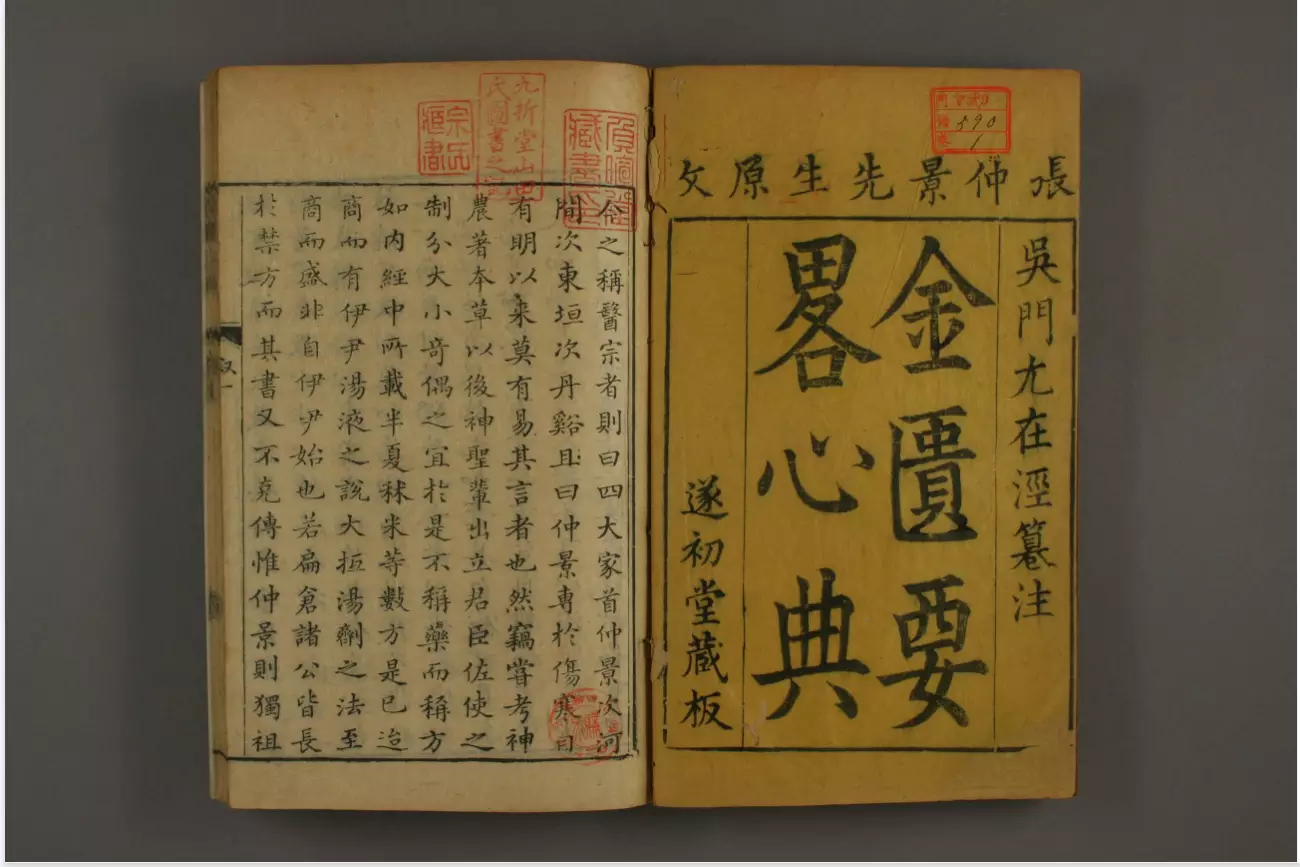 張仲景先生原文
吳門尤在涇纂注
金匱要
畧心典
遂初堂藏板
590
1
今之稱醫宗者則曰四大家首仲景次河
間次東垣次丹谿且曰仲景專於傷寒自
有明以来莫有易其言者也然竊嘗考神
農著本草以後神聖輩出立君臣佐使之
制分大小奇偶之宜於是不稱藥而稱方
如内經中所載半夏秫米等數方是已迨
商而有伊尹湯液之說大抵湯劑之法至
商而盛非自伊尹始也若扁倉諸公皆長
於禁方而其書又不克傳惟仲景則獨祖
九折堂山田
氏圖書之記
宗氏
藏書